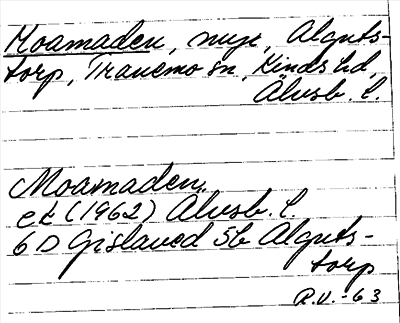 Moamaden, myr, Alguts-
torp, Tranemo sn, Kinds hd,
Älvsb. l.
Moamaden,
ek (1962) Älvsb. l.
6 D Gislaved 5b Alguts-
torp
R.V. -63